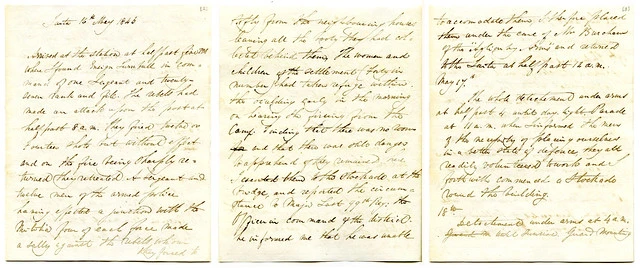 Hutt 16th May 1846
Arrived at the station at half past
when I found Ensign Turnbull in com-
mand of one Sergeant and twenty
seven rank and file. The rebels had
made an attack upon the post at
half past 8 a.m. They fired twelve or
fourteen shots but without effect
and on the fire being sharply re-
turned they retreated. A Sergeant and
twelve men of the armed police
having effected a junction with the
form of each force made
a sally against the rebels whom
they forced to
reply from the neighbouring house
leaving all the booty they had col-
lected behind them. The women and
children of the settlement forty in
number had taken refuge within
the building early in the morning
on hearing the firing from the
Camp. Finding that there was no room
and that there was still danger
to apprehend if they remained we
escorted them to the Stockade at the
bridge and reported the circum-
stance to Major Last 99th Regt. the
Officer in command of the district
he informed me that he was unable
to accomodate them, I therefore placed
them under the care of Mr Burcham
of the "Aglionby Arms" and returned
to the Hutt at half past 12 a.m.
May 17th
The whole detachment under arms
at half past 4 until day light. Parade
at 11 a.m. when I informed the men
of the necessity of placing ourselves
in a better state of defence they all
readily volunteered to work and
forthwith commenced a Stockade
round the building.
18th
Detachment under arms at 4 a.m.
Guard Mounting